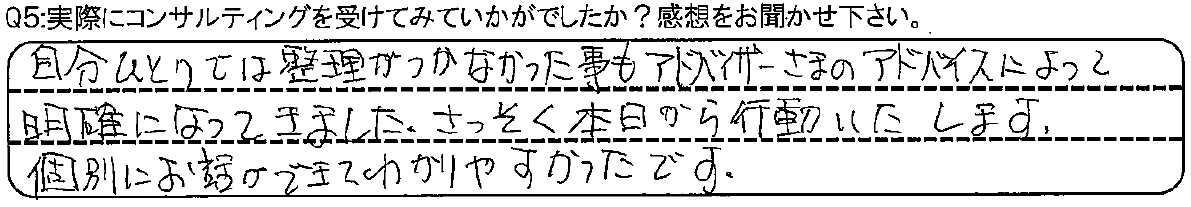 Q5:実際にコンサルティングを受けてみていかがでしたか？感想をお聞かせ下さい。
自分ひとりでは整理がつかなかった事もアドバイザーさまのアドバイスによって
明確になってきました。さっそく本日から行動いたします。
個別にお話ができてわかりやすかったです。